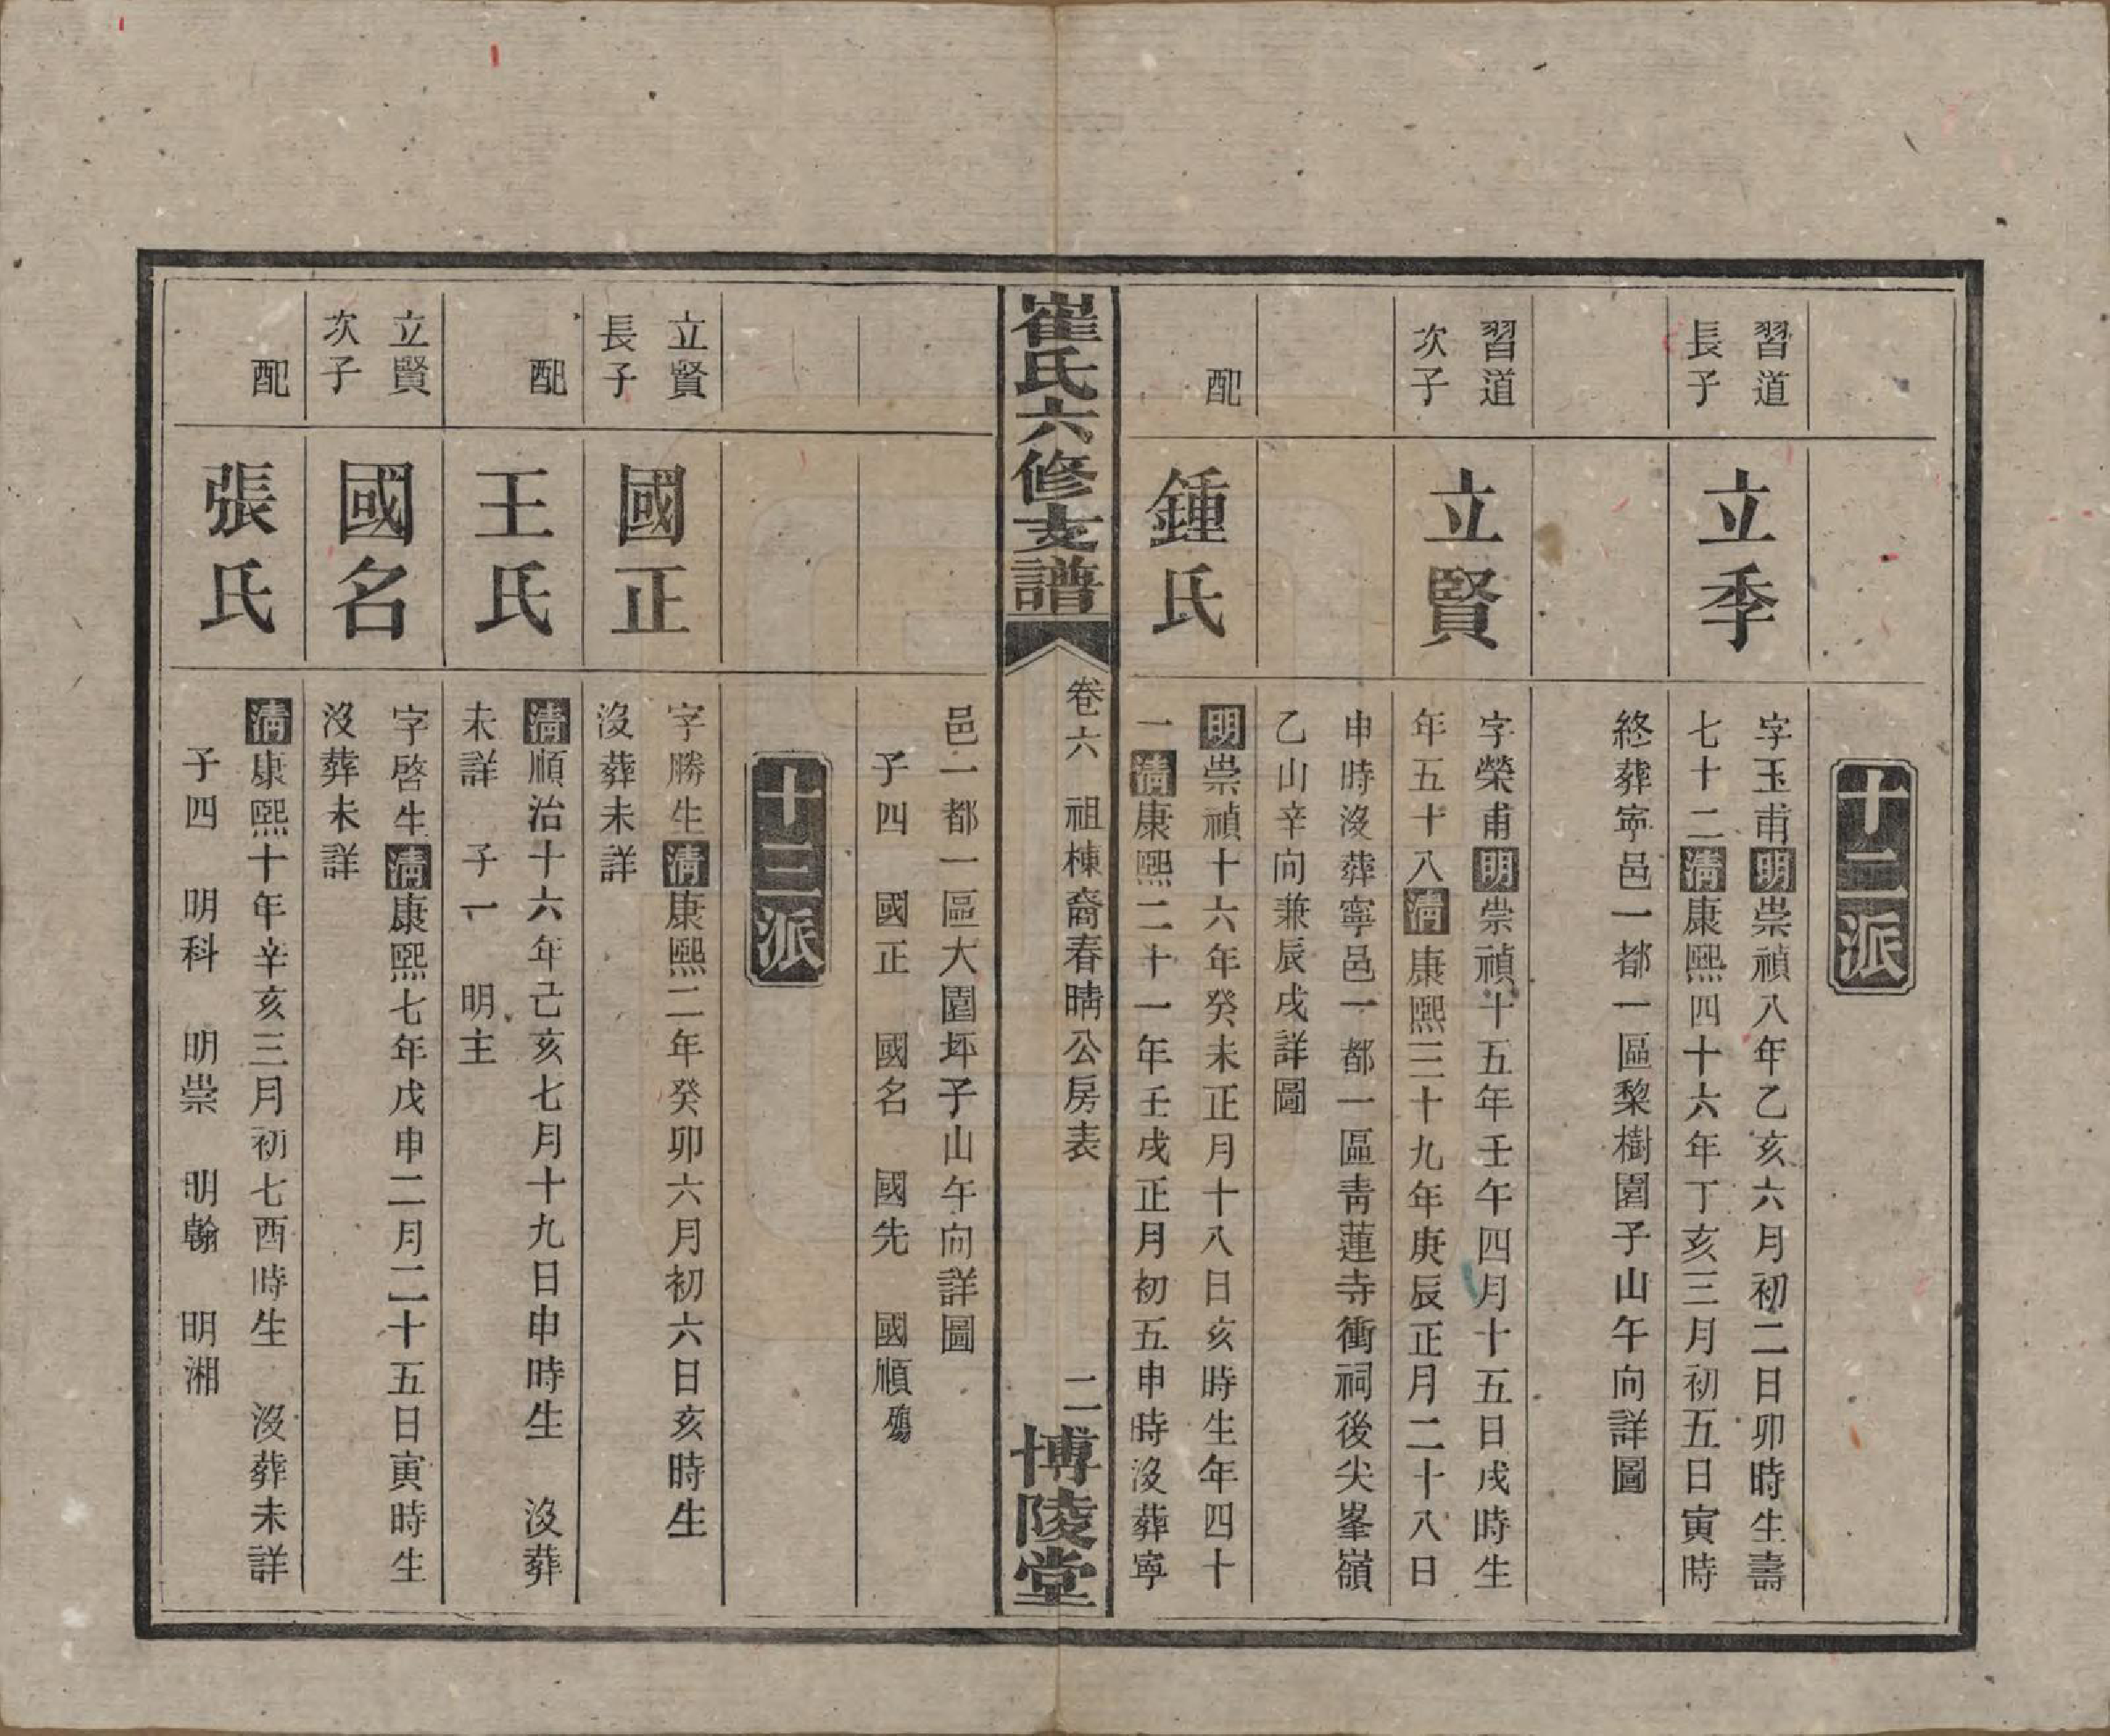 十二派
習道
長子
立季
字玉甫明崇禎八年乙亥六月初二日卯時生壽
七十二清康熙四十六年丁亥三月初五日寅時
終葬寧邑一都一區棃樹園子山午向詳圖
習道
次子
立賢
字榮甫明崇禎十五年壬午四月十五日戌時生
年五十八清康熙三十九年庚辰正月二十八日
申時沒葬寧邑一都一區靑蓮寺衝祠後尖峯嶺
乙山辛向兼辰戌詳圖
配
鍾氏
明崇禎十六年癸未正月十八日亥時生年四十
一清康熙二十一年壬戌正月初五申時沒葬寧
崔氏六修支譜
卷六 祖棟裔春晴公房表
二
博陵堂
邑一都一區大園坪子山午向詳圖
子四 國正 國名 國先 國順殤
十三派
立賢
長子
國正
字勝生清康熙二年癸卯六月初六日亥時生
沒葬未詳
配
王氏
清順治十六年己亥七月十九日申時生 沒葬
未詳 子一 明主
立賢
次子
國名
字啓生清康熙七年戊申二月二十五日寅時生
沒葬未詳
配
張氏
清康熙十年辛亥三月初七酉時生 沒葬未詳
子四 明科 明崇 明翰 明湘